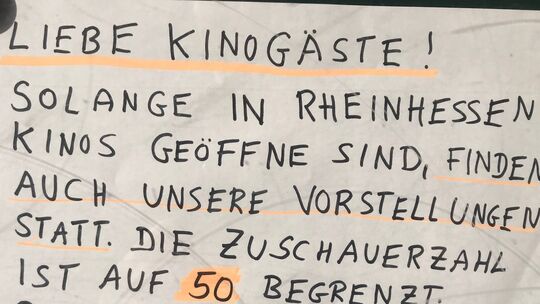 LIEBE KINOGÄSTE!
SOLANGE IN RHEINHESSEN
KINOS GEÖFFNE SIND, FINDEN
AUCH UNSERE VORSTELLUNGEN
STATT. DIE ZUSCHAUERZAHL
IST AUF 50 BEGRENZT.